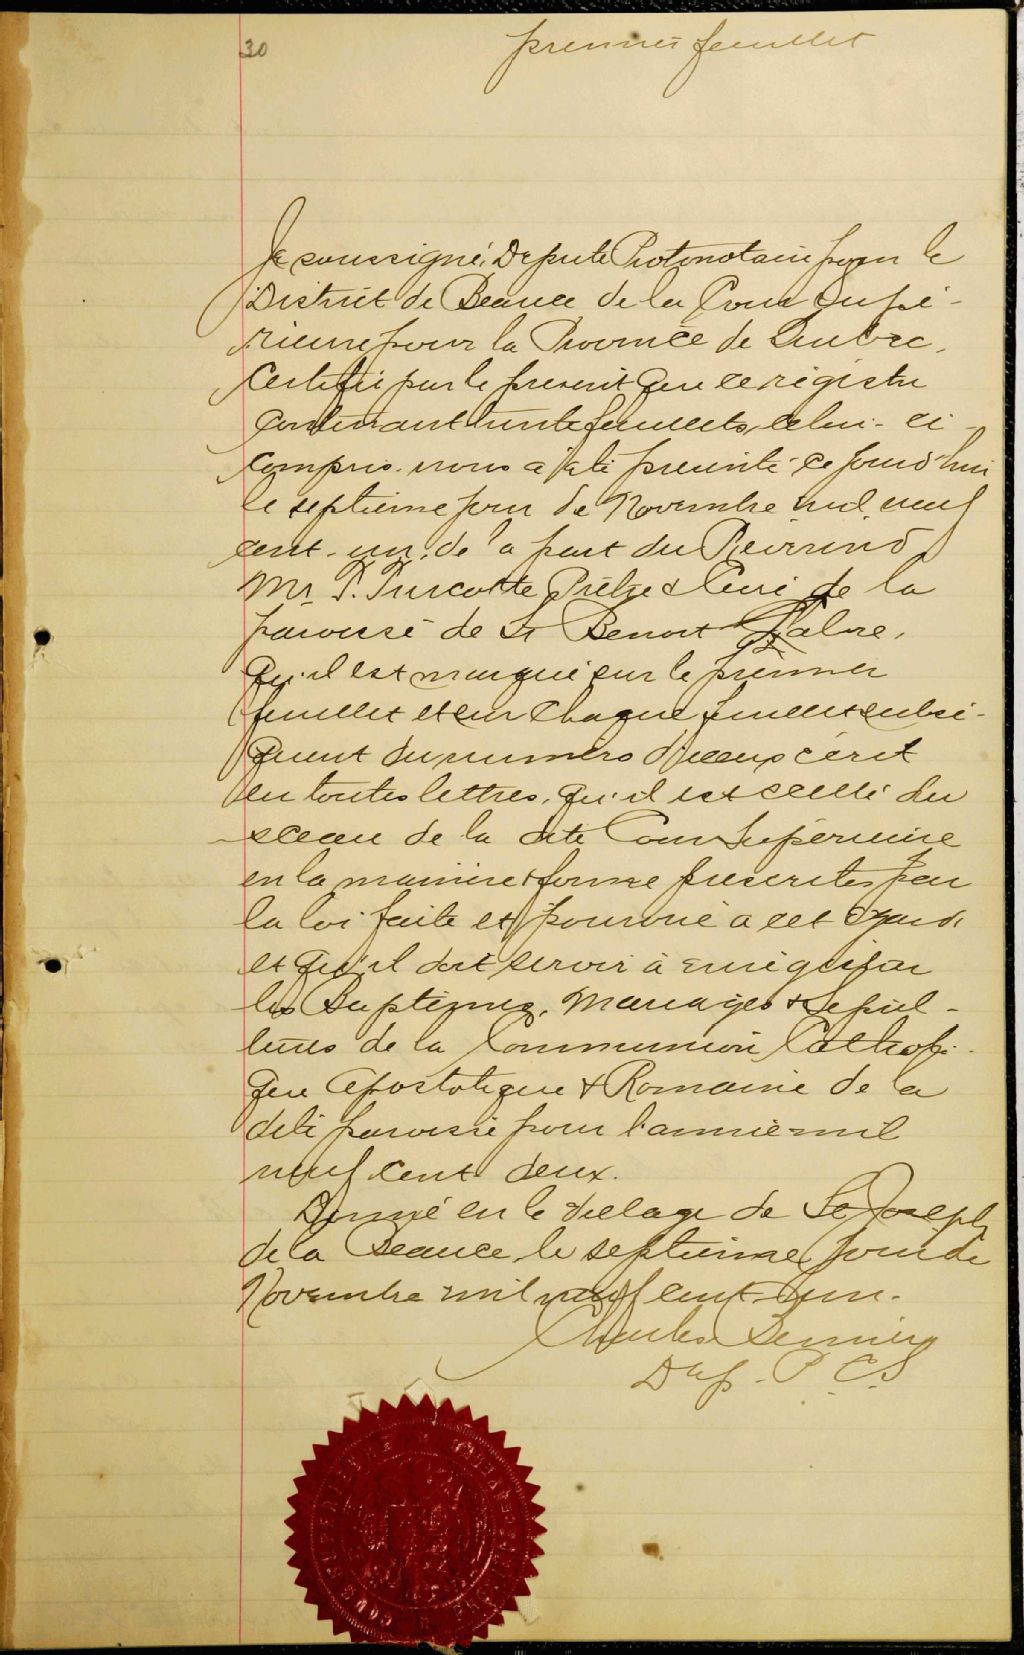 30
premier feuillet
Je soussigné, Député Protonotaire pour le
District de Beauce de la Cour Supé-
rieure pour la Province de Quebec,
Certifie par le présent que ce régistre
contenant trente feuillets, celui-ci
compris nous a été présenté ce jourd'hui
le septième jour de Novembre mil neuf
cent-un, de la part du Révérend
Mr. P. Turcotte Prêtre & Curé de la
paroisse de St Benoit Labre,
qu'il est marqué sur le premier
feuillet et sur chaque feuillet subsé-
quent du numéro d'iceux écrit
en toutes lettres, qu'il est scellé du
sceau de la dite Cour Supérieure
en la manière & forme prescrites par
la loi faite et pourvue a cet égard
et qu'il doit servir à enrégistrer
les Baptêmes, Mariages & Sépul-
tures de la Communion Catholi-
que Apostolique & Romaine de la
dite paroisse pour l'année mil
neuf cent deux.
Donné en le village de St Joseph
de la Beauce, le septième jour de
Novembre mil neuf cent-un.
Charles
Dép. P. C. S